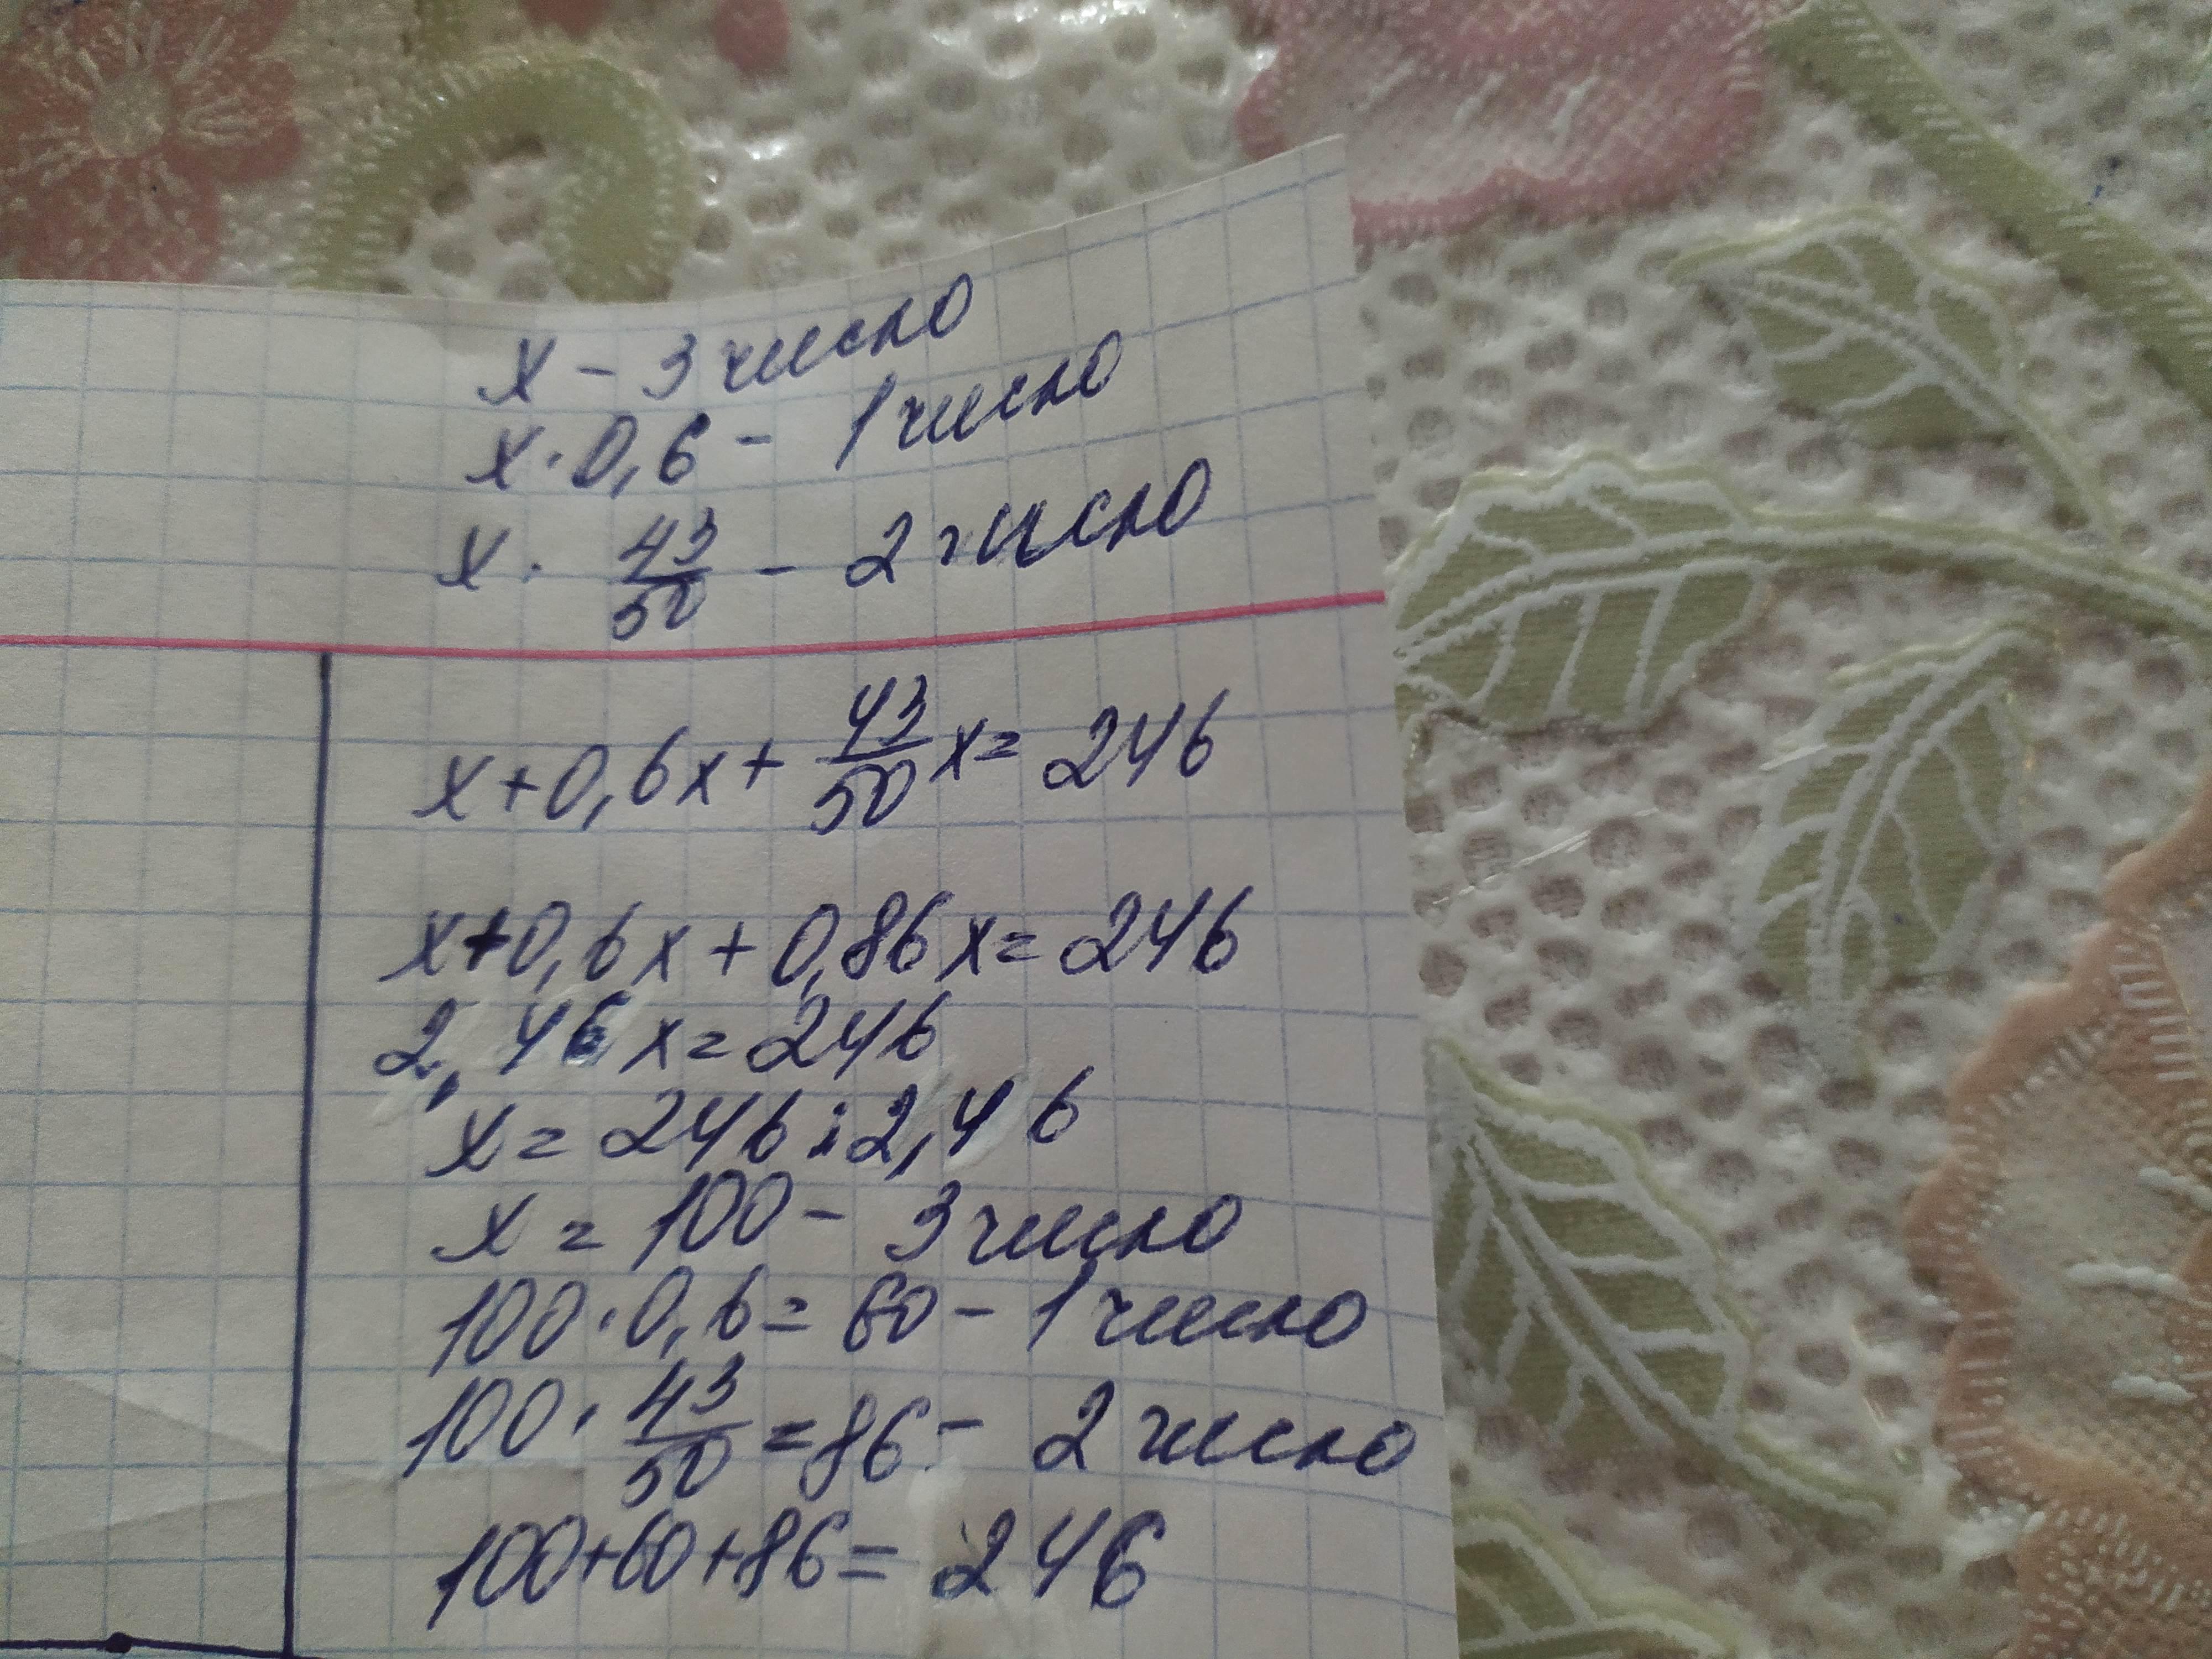 x - 3 число
x · 0,6 - 1 число
x · 43/50 - 2 число
x + 0,6x + 43/50 x = 246
x + 0,6x + 0,86x = 246
2,46x = 246
x = 246 : 2,46
x = 100 - 3 число
100 · 0,6 = 60 - 1 число
100 · 43/50 = 86 - 2 число
100 + 60 + 86 = 246